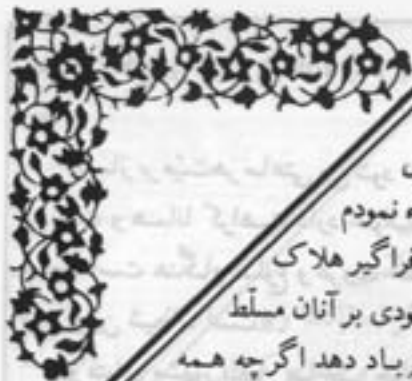 ه نمودم
فراگیر هلاک
ودی بر آنان مسلّط
باد دهد اگرچه همه